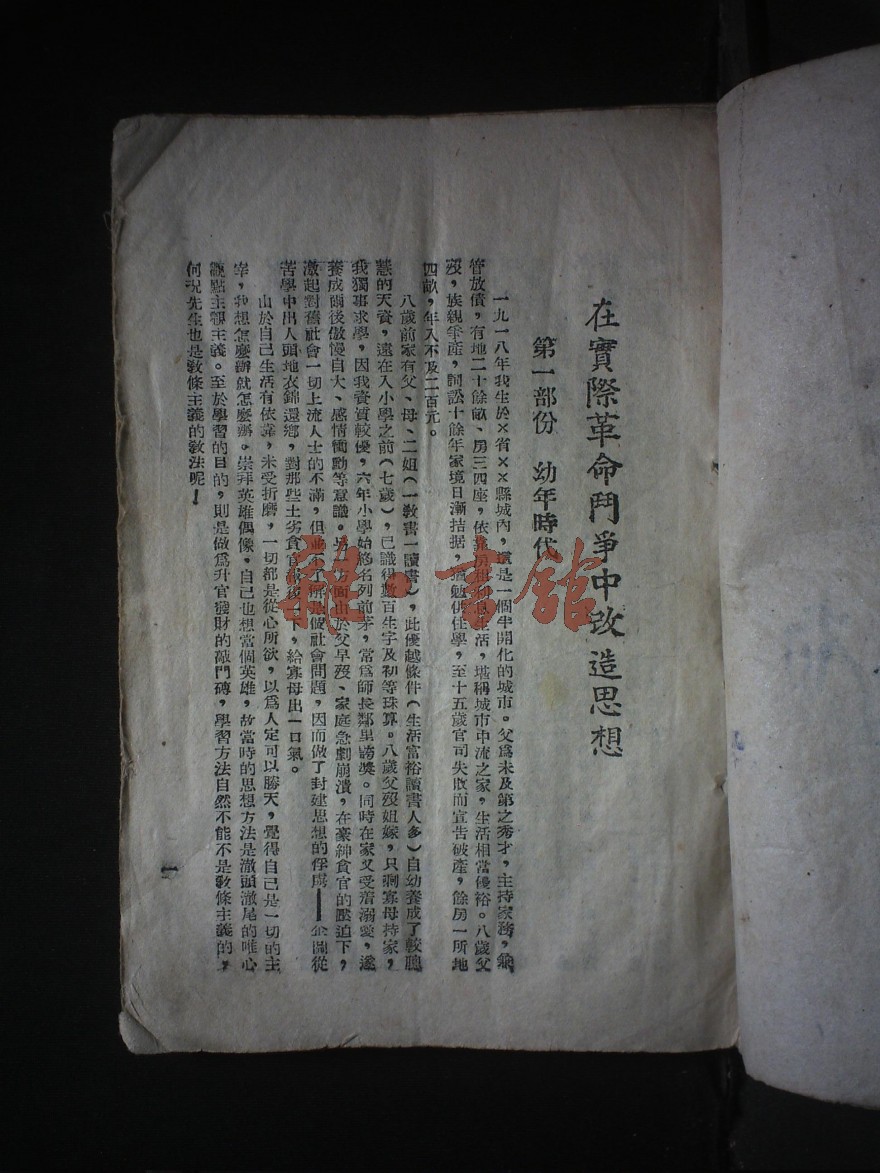 在實際革命鬥爭中改造思想
第一部份　幼年時代
一九一八年我生於×省××縣城內，這是一個半開化的城市。父爲未及第之秀才，主持家務，兼
管放債，有地二十餘畝、房三四座，依靠房租利息生活，堪稱城市中流之家，生活相當優裕。八歲父
歿，族親爭產，詞訟十餘年家境日漸拮据，猶勉供任學，至十五歲官司失敗而宣告破產，餘房一所地
四畝，年入不及二百元。
八歲前家有父、母、二姐（一教書一讀書），此優越條件（生活富裕讀書人多）自幼養成了較聰
慧的天資，遠在入小學之前（七歲），已識得數百生字及初等珠算。八歲父歿姐嫁，只剩寡母持家，
我獨事求學，因我資質較優，六年小學始終名列前茅，常爲師長鄰里誇獎。同時在家又受着溺愛，遂
養成爾後傲慢自大、感情衝動等意識。另一方面由於父早歿、家庭急劇崩潰，在豪紳貪官的壓迫下，
激起對舊社會一切上流人士的不滿，但並不了解是個社會問題，因而做了封建思想的俘虜——企圖從
苦學中出人頭地衣錦還鄉，對那些土劣貪官報復一下，給寡母出一口氣。
由於自己生活有依靠，未受折磨，一切都是從心所欲，以爲人定可以勝天，覺得自己是一切的主
宰，我想怎麼辦就怎麼辦。崇拜英雄偶像，自己也想當個英雄，故當時的思想方法是澈頭澈尾的唯心
觀點主觀主義。至於學習的目的，則是做爲升官發財的敲門磚，學習方法自然不能不是教條主義的，
何況先生也是教條主義的教法呢！
一
書館